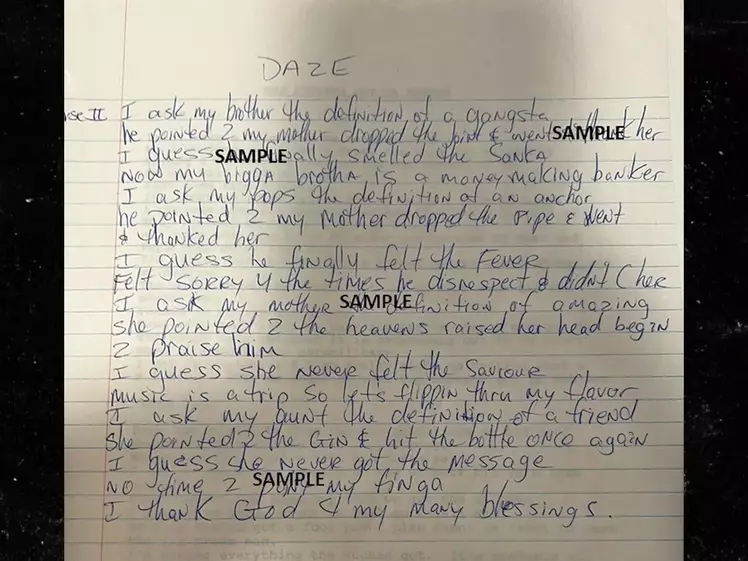 DAZE
rse II I ask my brother the definition of a gangsta
he pointed 2 my mother dropped the joint & went SAMPLE her
I guess SAMPLE finally smelled the Sanka
Now my bigga brotha is a money making banker
I ask my pops the definition of an anchor
he pointed 2 my Mother dropped the Pipe & went
& thanked her
I guess he finally felt the Fever
Felt sorry 4 the times he disrespect & didn't C her
I ask my mother SAMPLE definition of amazing
she pointed 2 the heavens raised her head begin
2 praise him
I guess she never felt the Saviour
music is a trip so let's flippin thru my flavor
I ask my aunt the definition of a friend
she pointed 2 the Gin & hit the bottle once again
I guess she never got the message
No time 2 SAMPLE my finga
I thank God 4 my many blessings.